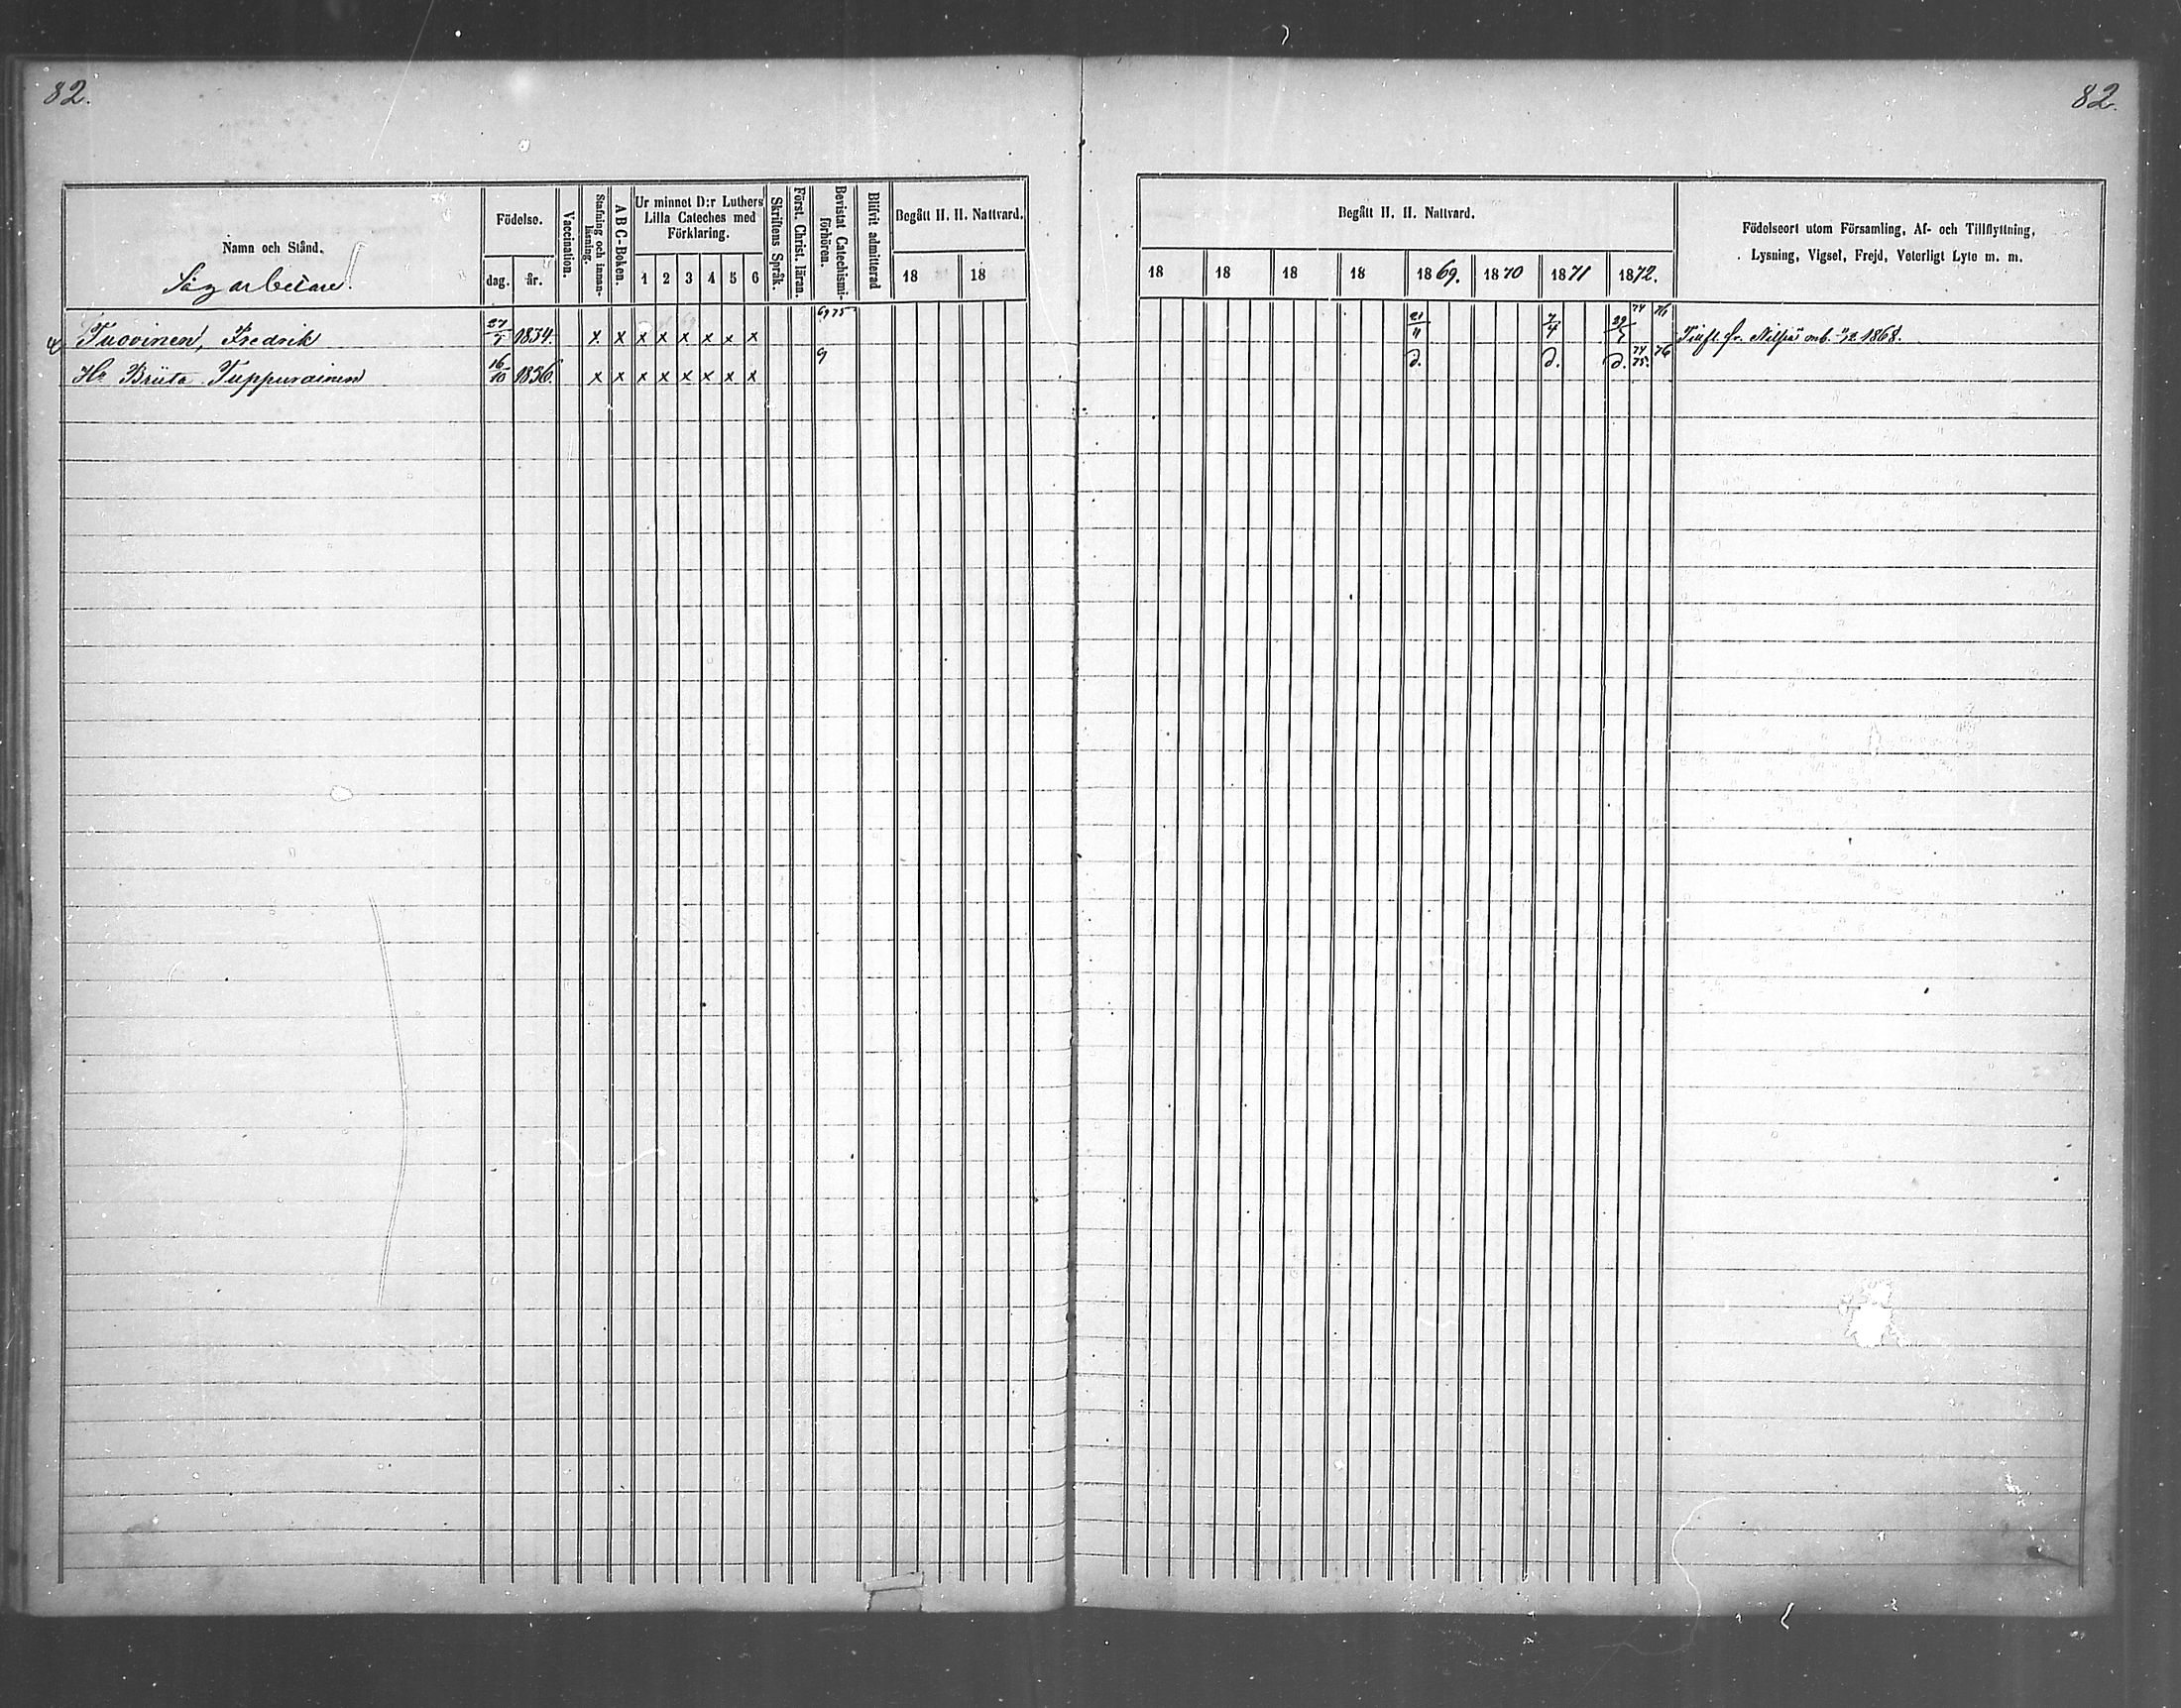 82.
82.
Namn och Stånd.
Sågarbetare.
Födelse.
dag.
år.
Vaccination.
Stafning och innanläsning.
ABC-Boken.
Ur minnet D:r Luthers Lilla Cateches med Förklaring.
1 2 3 4 5 6
Skriftens Språk.
Först. Christ. läran.
Bevistat Catechismiförhören.
Blifvit admitterad
Begått H. H. Nattvard.
18 18
Begått H. H. Nattvard.
18 18 18 18 1869. 1870 1871 1872.
Födelseort utom Församling, Af- och Tillflyttning,
Lysning, Vigsel, Frejd, Veterligt Lyte m. m.
69 75 74 76
Tuovinen, Fredrik 1834. x x x x x x x x 21/11 7/4 Tillfl. fr. Nilsiä 1868.
9 d. d. d. 74 75. 76
Hu Brita Tuppurainen 16/10 1836. x x x x x x x x